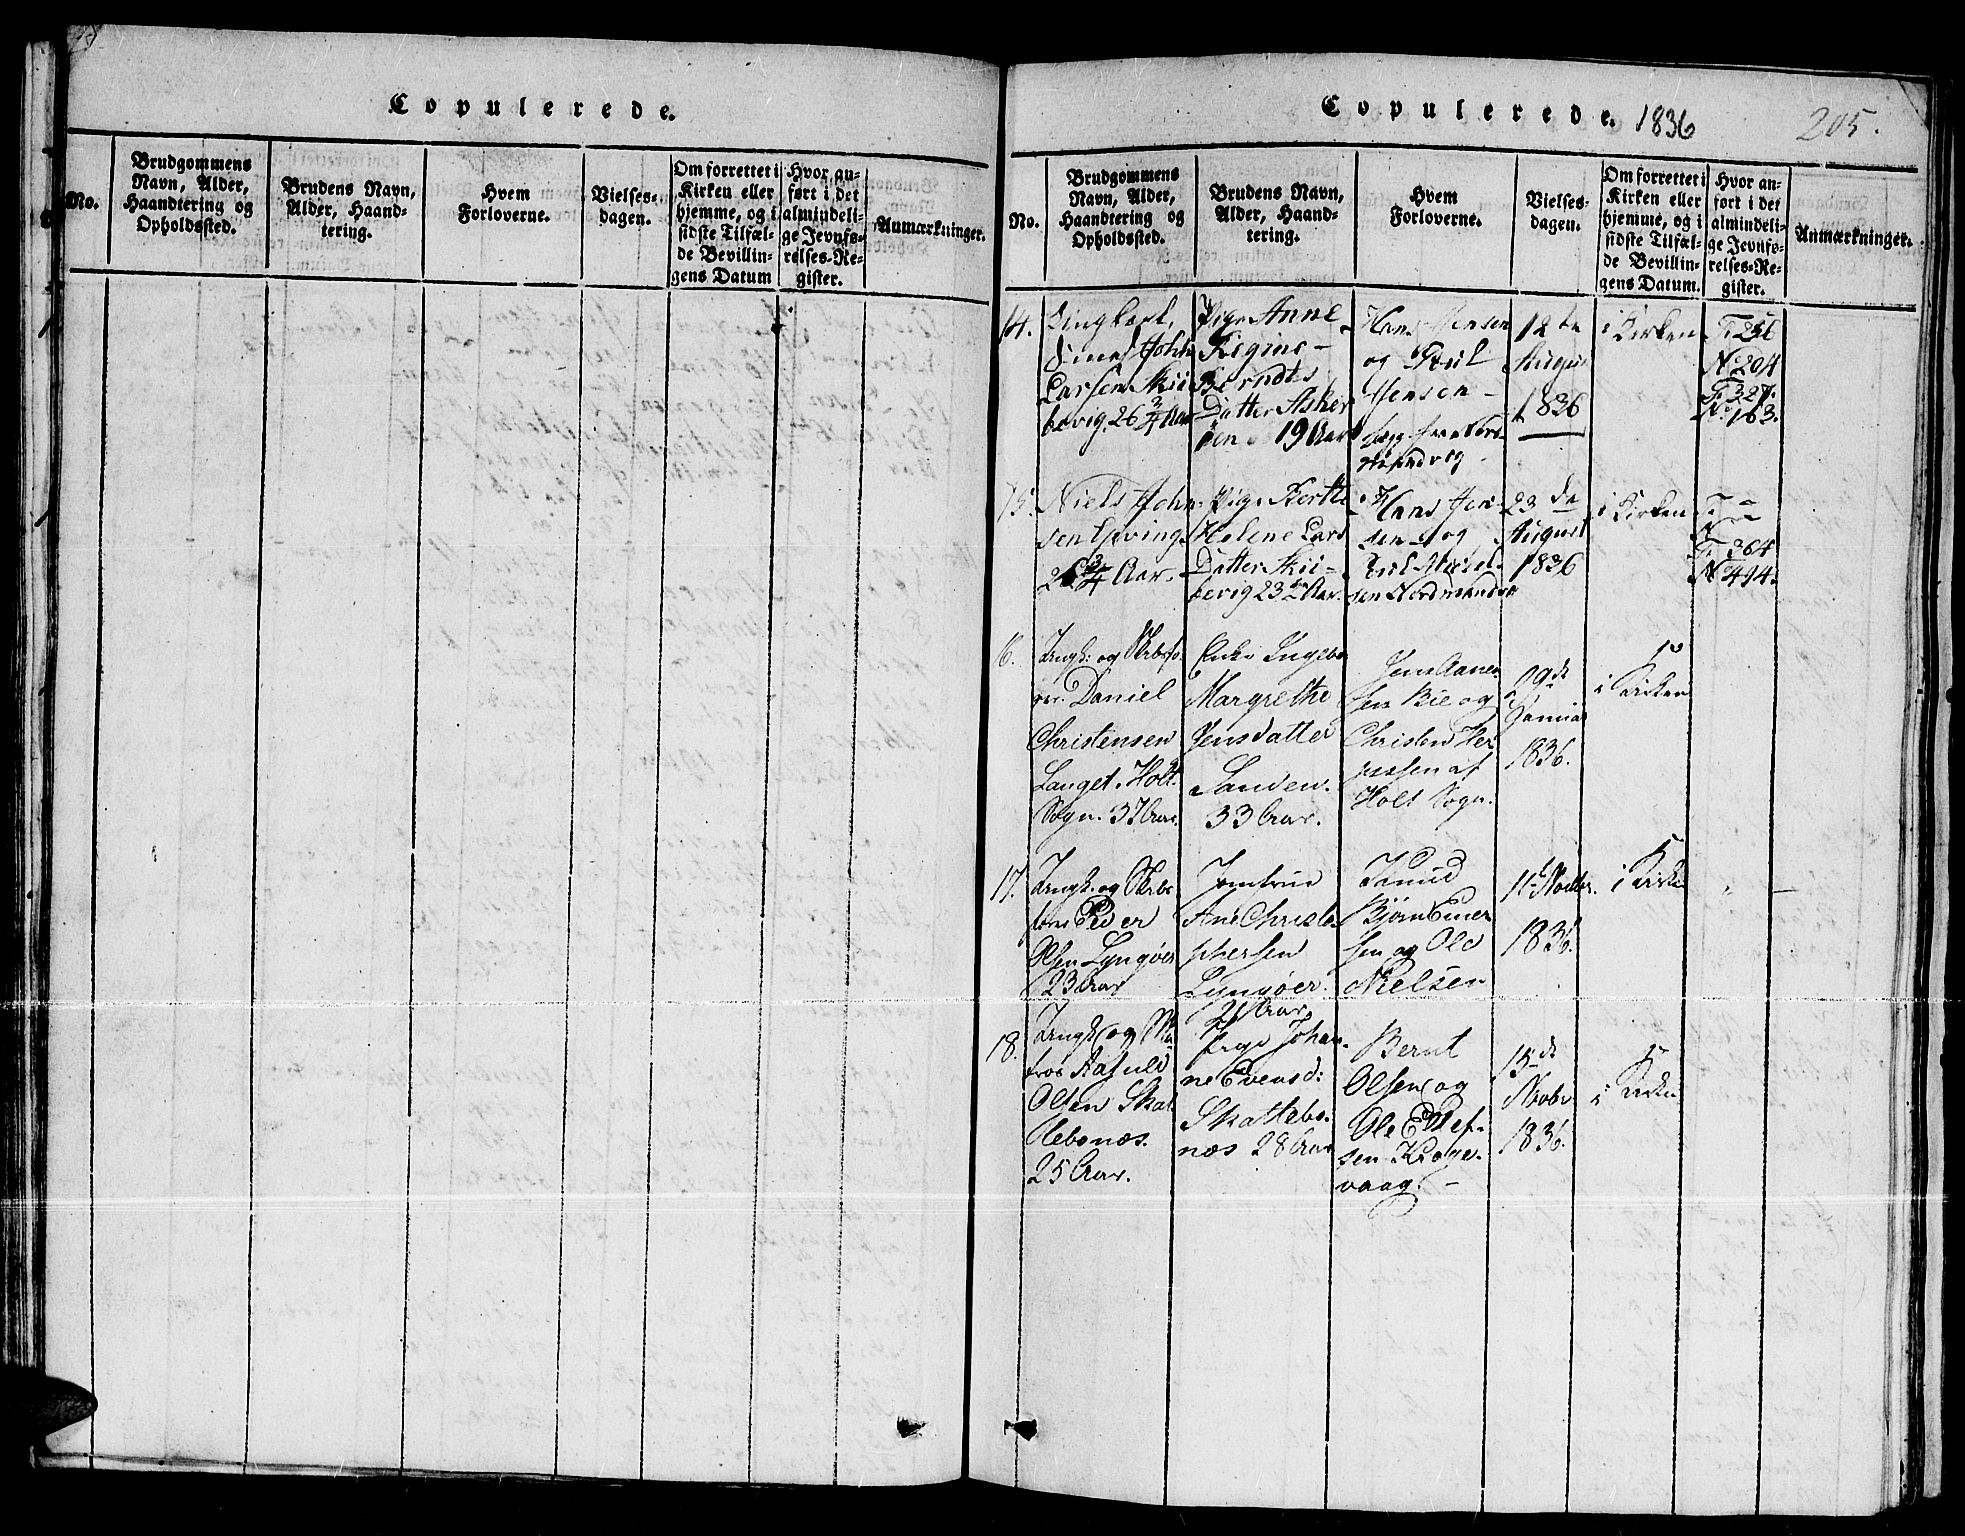 Copulerede.
No.
Brudgommens
Navn, Alder,
Haandtering og
Opholdssted.
Brudens Navn,
Alder, Haand-
tering.
Hvem
Forloverne.
Vielses-
dagen.
Om forrettet i
Kirken eller
hjemme, og i
sidste Tilfæl-
de Bevillin-
gens Datum
Hvor an-
ført i det
almindeli-
ge Jevnfø-
relses-Re-
gister.
Anmærkninger.
Copulerede. 1836
205.
No.
Brudgommens
Navn, Alder,
Haandtering og
Opholdssted.
Brudens Navn,
Alder, Haand-
tering.
Hvem
Forloverne.
Vielses-
dagen.
Om forrettet i
Kirken eller
hjemme, og i
sidste Tilfæl-
de Bevillin-
gens Datum.
Hvor an-
ført i det
almindeli-
ge Jevnfø-
relses-Re-
gister.
Anmærkninger.
14.
John
Larsen Skii
bevig. 26 3/4 Aar
Pige Anne
Regine
Berndts
Datter Asker
öen 19 Aar
Hans Jensen
og Poul
Jensen
12te
August
1836
i Kirken
F. 256
No 204
F. 327.
No 163.
15.
Niels John
sen
26 3/4 Aar.
Pige Berthe
Helene Lars
Datter Skii-
bevig 23 1/2 Aar.
Hans Jen-
sen og
sen Nordmandv
23de
August
1836
i Kirken
F. 364
No 494.
16.
Ungk: og
Daniel
Christensen
Langet, Holt
Sogn. 37 Aar.
Enke Ingebor
Margrethe
Jensdatter
Sanden.
33 Aar.
Jens Aanen
sen Bie og
Christen Ter
jussen af
Holt Sogn.
29de
Januar
1836.
i Kirken
17.
Ungk. og
Peder
Olsen Lyngöer
23 Aar
Jomfrue
Ane Christo
phersen
Lyngöer.
21 Aar.
Knud
Björn Einer
sen og Ole
Nielsen
11te Novbr.
1836.
i Kirke
18.
Ungk. og Ma
tros
Olsen Skat
tebonæs.
25 Aar.
Pige Johan-
ne Evensd:
Skattebo-
næs 28 Aar
Bernt
Olsen og
Ole Ellef-
sen Krage-
vaag.
15de
Novbr
1836.
i Kirken